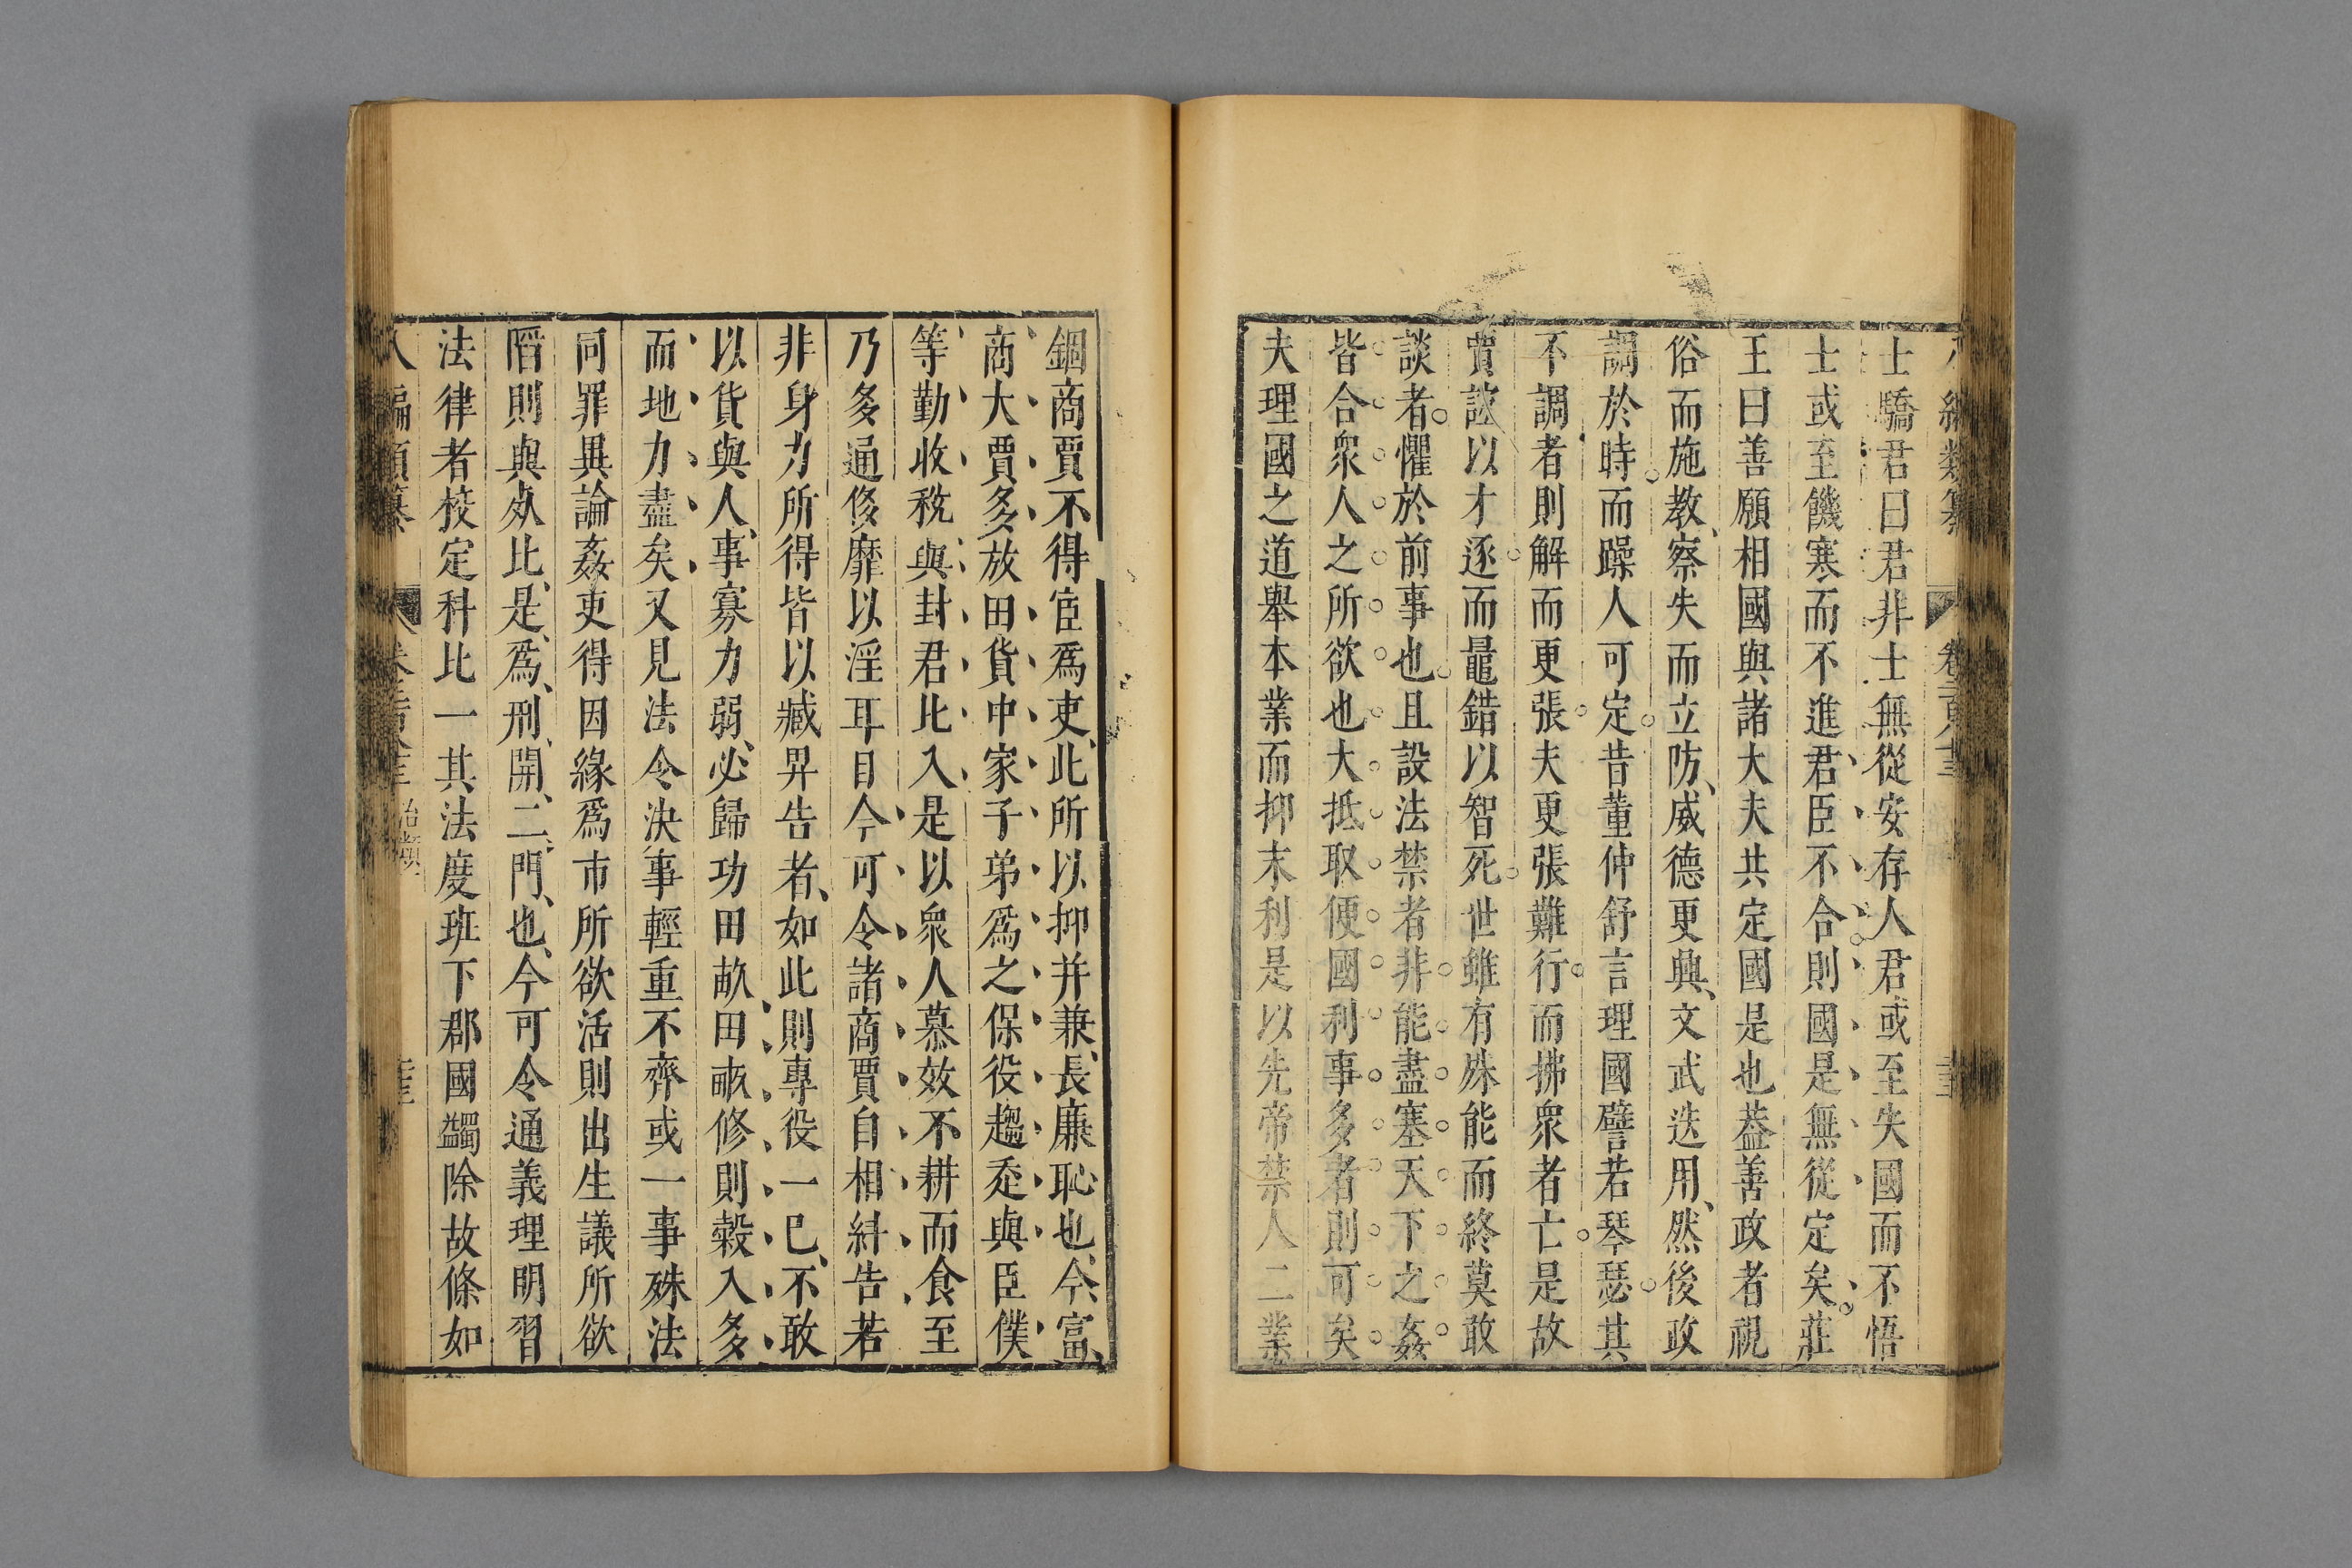 編類纂 卷二百八十三
士驕君曰君非士無從安存人君或至失國而不悟
士或至饑寒而不進君臣不合則國是無從定矣莊
王曰善願相國與諸大夫共定國是也葢善政者視
俗而施教察失而立防威德更興文武迭用然後政
調於時而躁人可定昔董仲舒言理國譬若琴瑟其
不調者則解而更張夫更張難行而拂衆者亡是故
賈誼以才逐而鼂錯以智死世雖有殊能而終莫敢
談者懼於前事也且設法禁者非能盡塞天下之姦
皆合衆人之所欲也大抵取便國利事多者則可矣
夫理國之道舉本業而抑末利是以先帝禁人二業
錮商賈不得宦爲吏此所以抑并兼長廉恥也今富
商大賈多放田貨中家子弟爲之保役趨走與臣僕
等勤收稅與封君比入是以衆人慕效不耕而食至
乃多通侈靡以淫耳目今可令諸商賈自相糾告若
非身力所得皆以臧畀告者如此則專役一巳不敢
以貨與人事寡力弱必歸功田畝田畝修則穀入多
而地力盡矣又見法令決事輕重不齊或一事殊法
同罪異論姦吏得因緣爲市所欲活則出生議所欲
陷則與死比是爲刑開二門也今可令通義理明習
法律者校定科比一其法度班下郡國蠲除故條如
八編類纂 治類